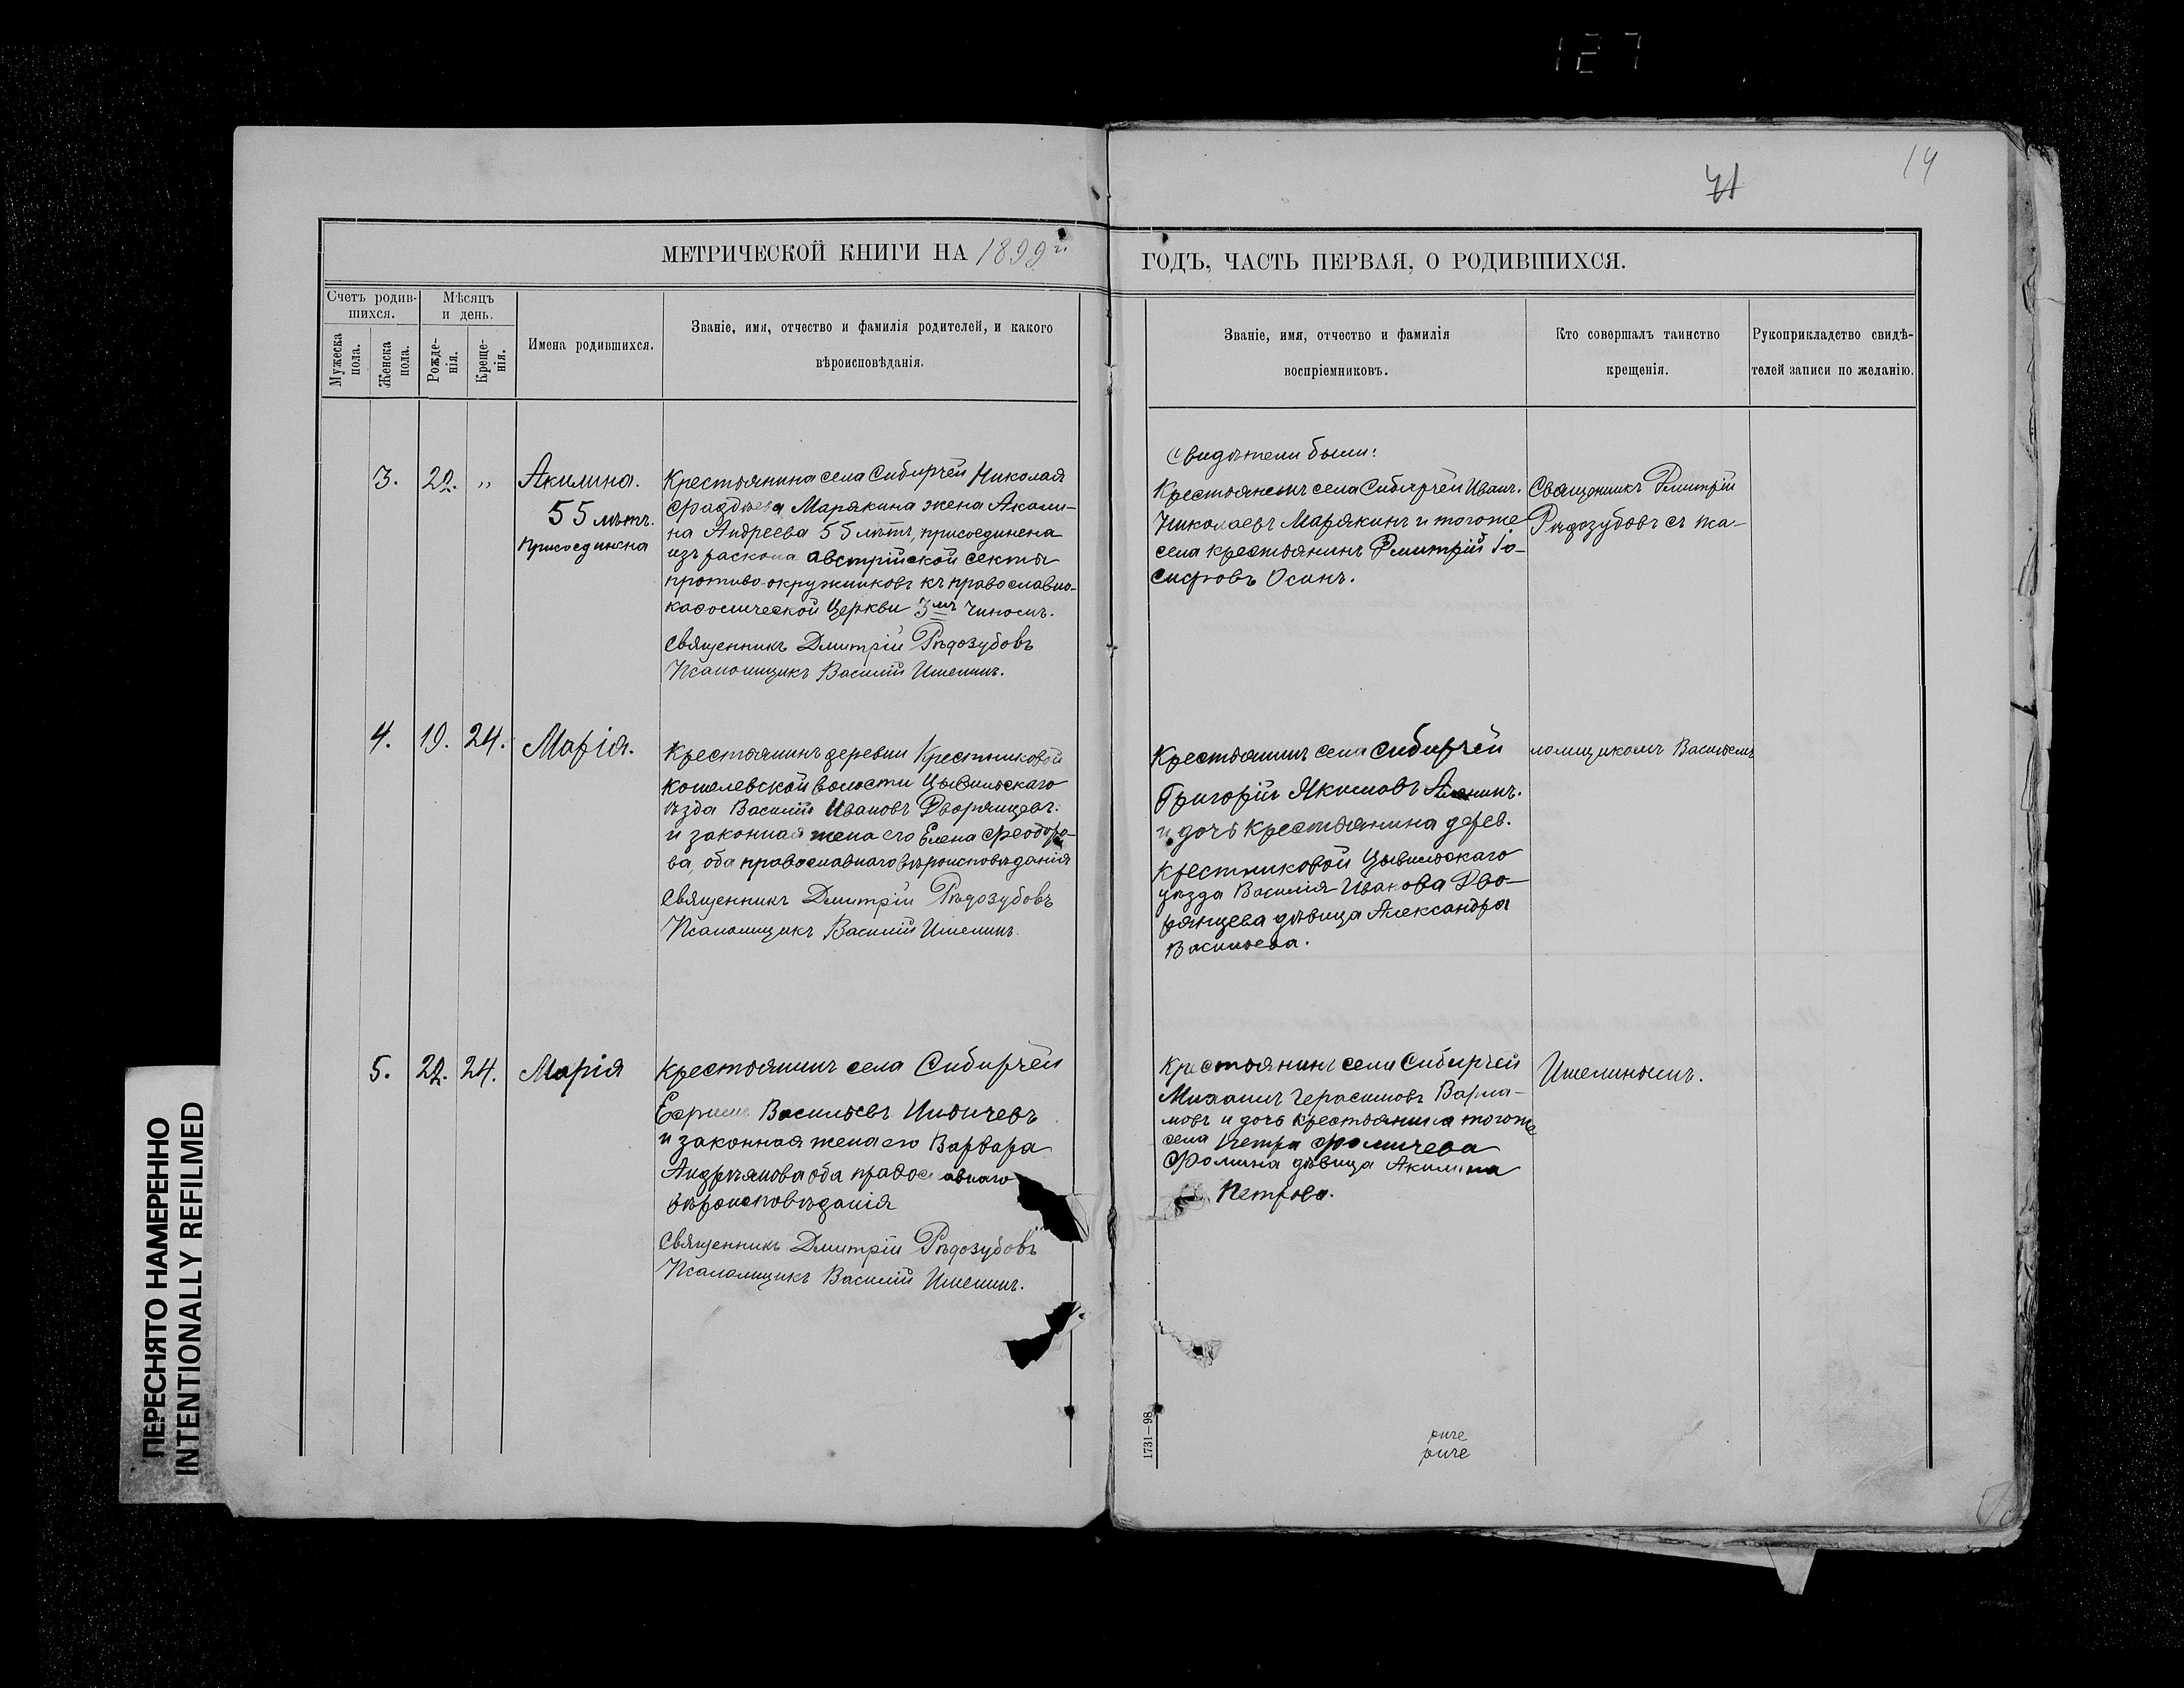 127
14
71
МЕТРИЧЕСКОЙ КНИГИ НА 1899 г.
ГОДЪ, ЧАСТЬ ПЕРВАЯ, О РОДИВШИХСЯ.
Счетъ родив-
шихся.
Мѣсяцъ
и день.
Мужеска
пола.
Женска
пола.
Рожде-
нія.
Креще-
нія.
Имена родившихся.
Званіе, имя, отчество и фамилія родителей, и какого
вѣроисповѣданія.
Званіе, имя, отчество и фамилія
воспріемниковъ.
Кто совершалъ таинство
крещенія.
Рукоприкладство свидѣ-
телей записи по желанію.
3. 22. „ Акилина.
55 лѣтъ.
присоединена
Крестьянина села Сибирчей Николая
Фаддѣева Марякина жена Акили-
на Андреева 55 лѣтъ, присоединена
изъ раскола австрійской секты
противо-окружниковъ къ православно-
каѳолической Церкви 3мъ чиномъ.
Священникъ Дмитрій Рѣдозубовъ
Псаломщикъ Василій Ишелинъ.
Свидѣтели были:
Крестьянинъ села Сибирчей Иванъ.
Николаевъ Марякинъ и тогоже
села крестьянинъ Дмитрій Іо-
сифовъ Осинъ.
Священникъ Дмитрій
Рѣдозубовъ съ пса-
4. 19. 24. Марія.
Крестьянинъ деревни Крестниковой
Кошелевской волости Цывильскаго
уѣзда Василій Ивановъ Дворянцевъ.
и законная жена его Елена Феодоро-
ва, оба православнаго вѣроисповѣданія
Священникъ Дмитрій Рѣдозубовъ
Псаломщикъ Василій Ишелинъ.
Крестьянинъ села Сибирчей
Григорій Якимовъ
и дочь крестьянина дерев.
Крестниковой Цывильскаго
уѣзда Василія Иванова Дво-
рянцева дѣвица Александра
Васильева.
ломщикомъ Василіемъ
5. 22. 24. Марія
Крестьянинъ села Сибирчей
Ефимъ Васильевъ
и законная жена его Варвара
Андреянова оба православнаго
вѣроисповѣданія
Священникъ Дмитрій Рѣдозубовъ
Псаломщикъ Василій Ишелинъ.
Крестьянинъ села Сибирчей
Михаилъ Герасимовъ Варла-
мовъ и дочь крестьянина тогоже
села Петра Фомичева
Фомина дѣвица Акилина
Петрова.
Ишелинымъ.
1731—98
ПЕРЕСНЯТО НАМЕРЕННО
INTENTIONALLY REFILMED